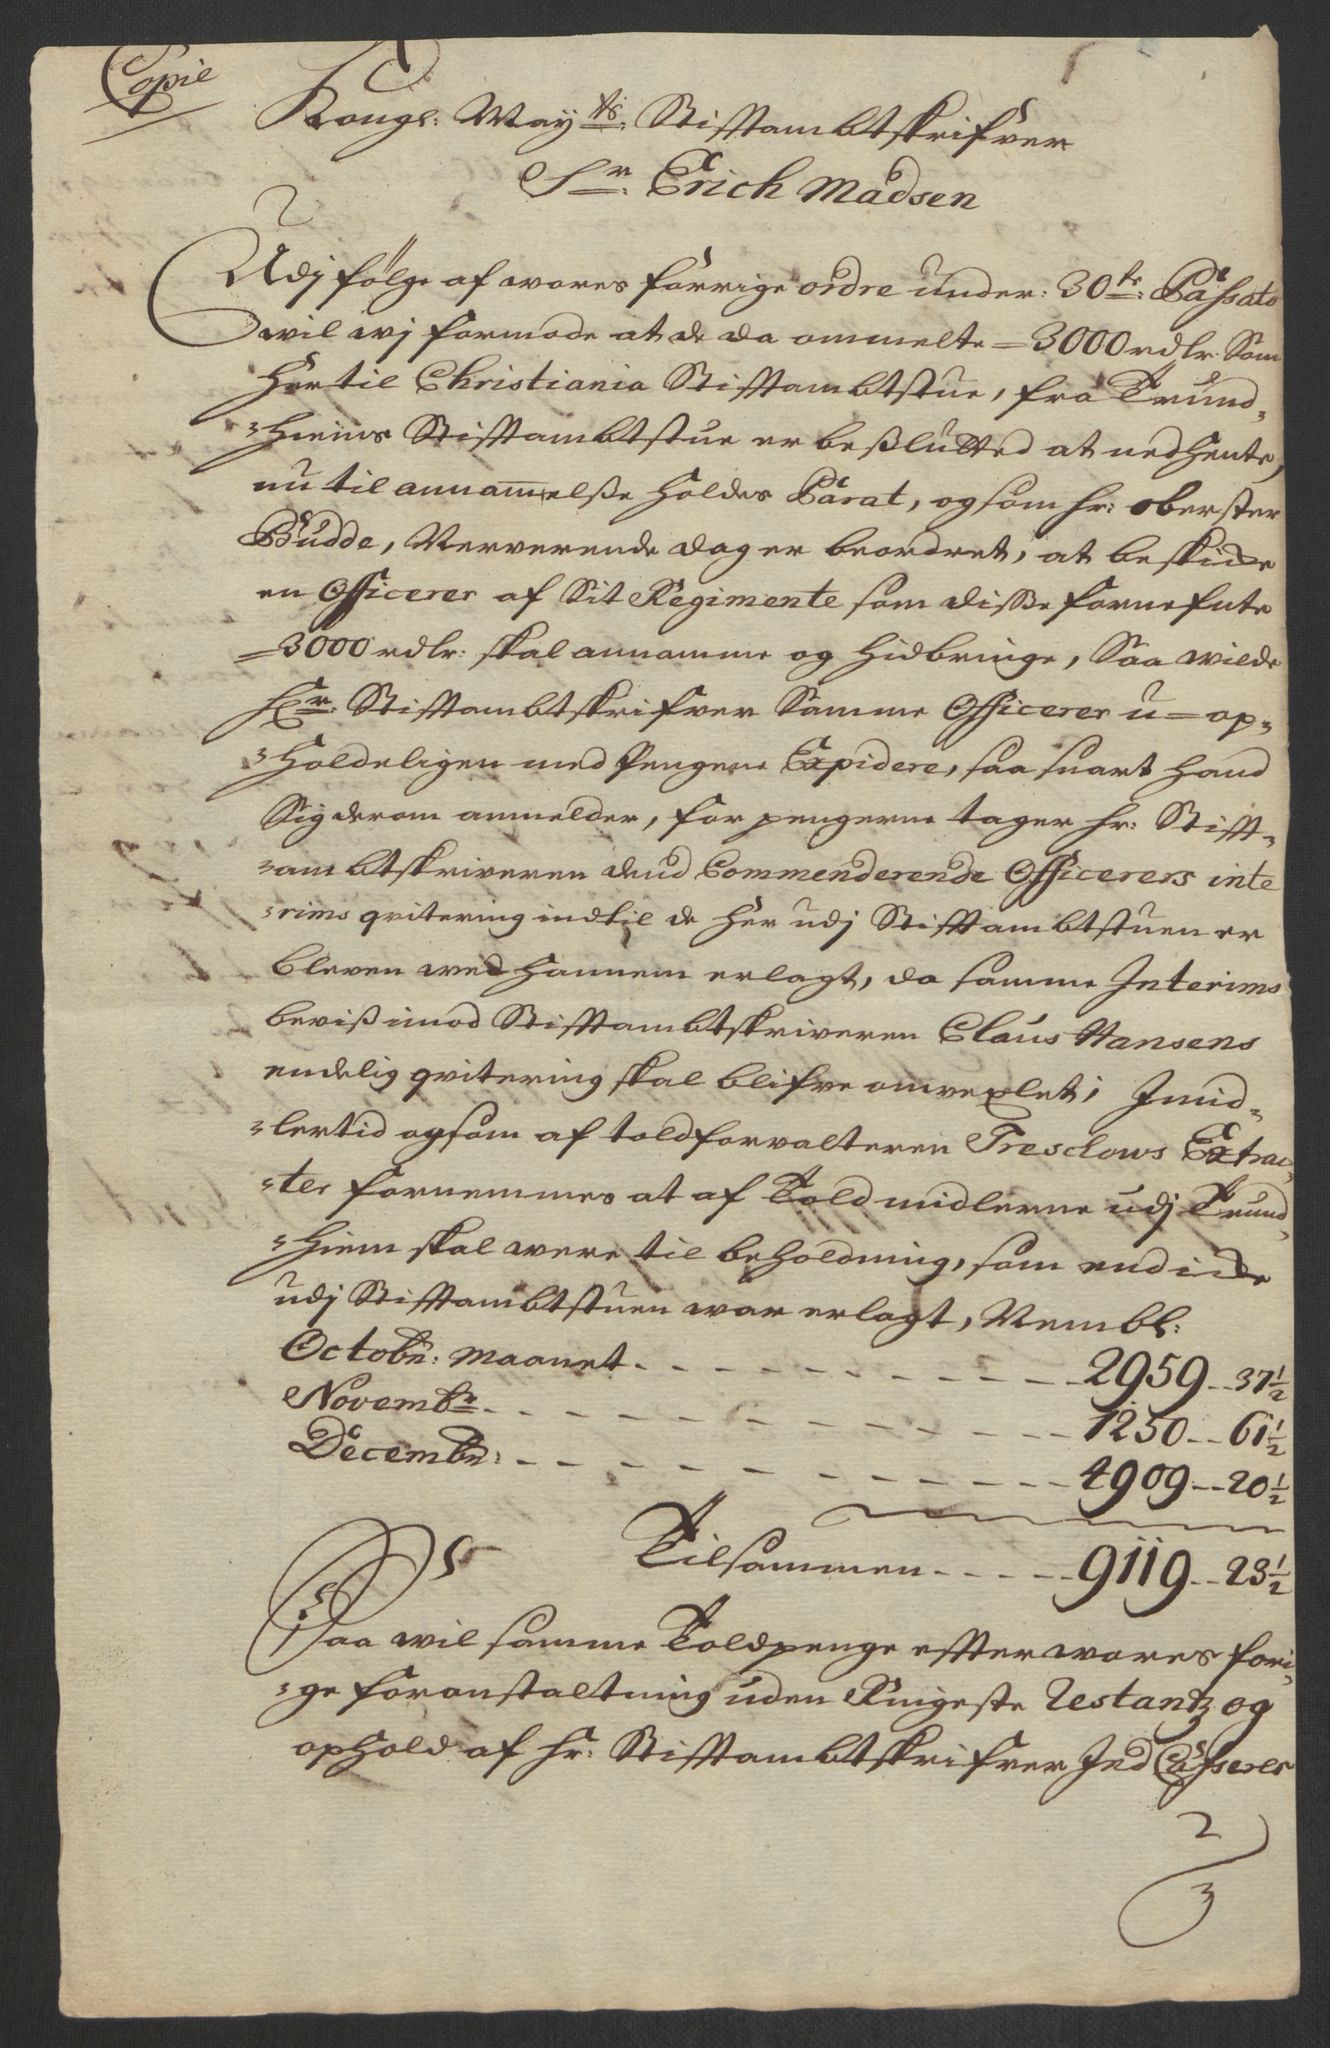 Copie
Kongl: Mayts: Stifftambtskrifver
Sr: Erich Madsen
Udj følge af wores forrige ordre under: 30te: Passato
wil wj formode at de da ommelte = 3000 rdlr. Som
hertil Christiania Stifftambtstue, fra Trund-
-hiems Stifftambtstue er beßlutted at nedhente,
nu til annammelße holdes Parat, og som hr: oberster
Budde, Nerverende dag er beordret, at beskicke
en Officerer af Sit Regimente som disse fornefnte
=3000 rdlr: skal annamme og hidbringe, Saa wilde
Hr: Stifftambtskrifver Samme Officerer u=op-
-holdeligen med Pengene Expidere, saa snart hand
Sig derom anmelder, for pengerne tager hr: Stifft-
-ambtskriveren dend Commenderende Officerers inte
-rims qvitering indtil de her udj Stifftambtstuen er
bleven wed hannem erlagt, da samme Interims
beviß imod Stifftambtskriveren Claus Hansens
endelig qvitering skal blifve omvexlet; Imid-
-lertid og som af toldforvalteren Tresclows Extrac-
-ter fornemmes at af Toldmidlerne udj Trund-
-hiem skal were til beholdning, som end icke
udj Stifftambtstuen war erlagt, Nembl:
Octobr: Maanet - - - 2959 - - 37½
Novembr - - - 1250 - - 61½
Decembr: - - - 4909 - - 20½
Tilsammen - - - 9119 - - 23½
Saa wil samme Toldpenge effter wores fori-
-ge foranstaltning uden Ringeste Restantz og
ophold af hr: Stifftambtskrifver Ind Casseres